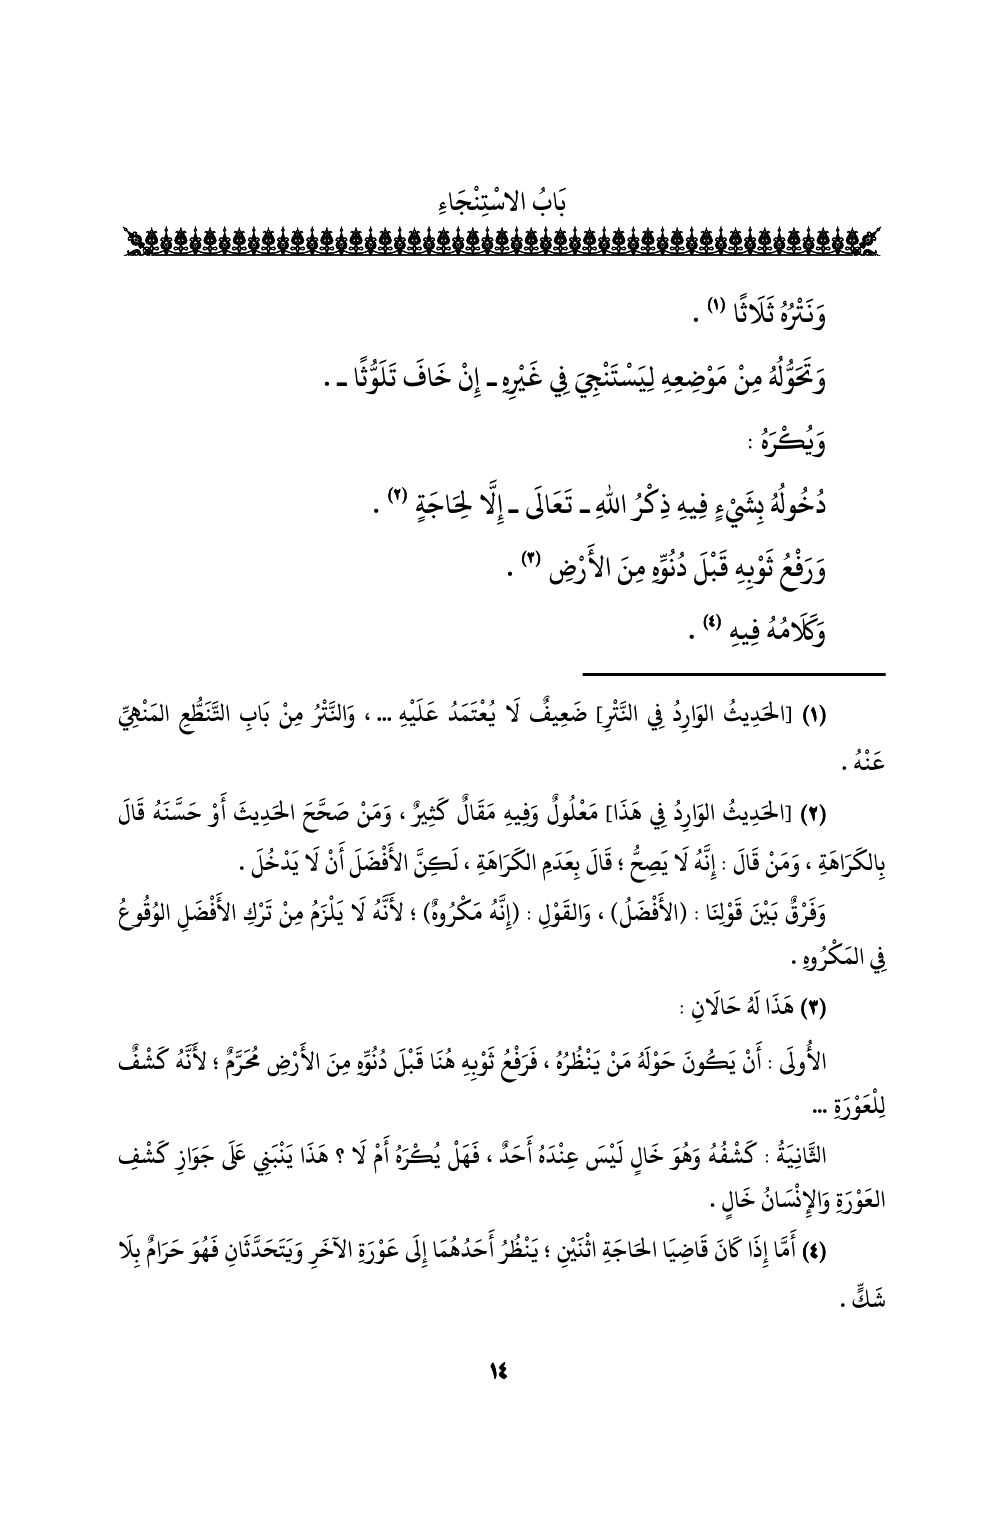 بَابُ الاسْتِنْجَاءِ
وَنَتْرُهُ ثَلَاثًا (١) .
وَتَحَوُّلُهُ مِنْ مَوْضِعِهِ لِيَسْتَنْجِيَ فِي غَيْرِهِ ـ إِنْ خَافَ تَلَوُّثًا ـ .
وَيُكْرَهُ :
دُخُولُهُ بِشَيْءٍ فِيهِ ذِكْرُ اللهِ ـ تَعَالَى ـ إِلَّا لِحَاجَةٍ (٢) .
وَرَفْعُ ثَوْبِهِ قَبْلَ دُنُوِّهِ مِنَ الأَرْضِ (٣) .
وَكَلَامُهُ فِيهِ (٤) .
(١) [الحَدِيثُ الوَارِدُ فِي النَّتْرِ] ضَعِيفٌ لَا يُعْتَمَدُ عَلَيْهِ ... ، وَالنَّتْرُ مِنْ بَابِ التَّنَطُّعِ المَنْهِيِّ
عَنْهُ .
(٢) [الحَدِيثُ الوَارِدُ فِي هَذَا] مَعْلُولٌ وَفِيهِ مَقَالٌ كَثِيرٌ ، وَمَنْ صَحَّحَ الحَدِيثَ أَوْ حَسَّنَهُ قَالَ
بِالكَرَاهَةِ ، وَمَنْ قَالَ : إِنَّهُ لَا يَصِحُّ ؛ قَالَ بِعَدَمِ الكَرَاهَةِ ، لَكِنَّ الأَفْضَلَ أَنْ لَا يَدْخُلَ .
وَفَرْقٌ بَيْنَ قَوْلِنَا : (الأَفْضَلُ) ، وَالقَوْلِ : (إِنَّهُ مَكْرُوهٌ) ؛ لأَنَّهُ لَا يَلْزَمُ مِنْ تَرْكِ الأَفْضَلِ الوُقُوعُ
فِي المَكْرُوهِ .
(٣) هَذَا لَهُ حَالَانِ :
الأُولَى : أَنْ يَكُونَ حَوْلَهُ مَنْ يَنْظُرُهُ ، فَرَفْعُ ثَوْبِهِ هُنَا قَبْلَ دُنُوِّهِ مِنَ الأَرْضِ مُحَرَّمٌ ؛ لأَنَّهُ كَشْفٌ
لِلْعَوْرَةِ ...
الثَّانِيَةُ : كَشْفُهُ وَهُوَ خَالٍ لَيْسَ عِنْدَهُ أَحَدٌ ، فَهَلْ يُكْرَهُ أَمْ لَا ؟ هَذَا يَنْبَنِي عَلَى جَوَازِ كَشْفِ
العَوْرَةِ وَالإِنْسَانُ خَالٍ .
(٤) أَمَّا إِذَا كَانَ قَاضِيَا الحَاجَةِ اثْنَيْنِ ؛ يَنْظُرُ أَحَدُهُمَا إِلَى عَوْرَةِ الآخَرِ وَيَتَحَدَّثَانِ فَهُوَ حَرَامٌ بِلَا
شَكٍّ .
١٤